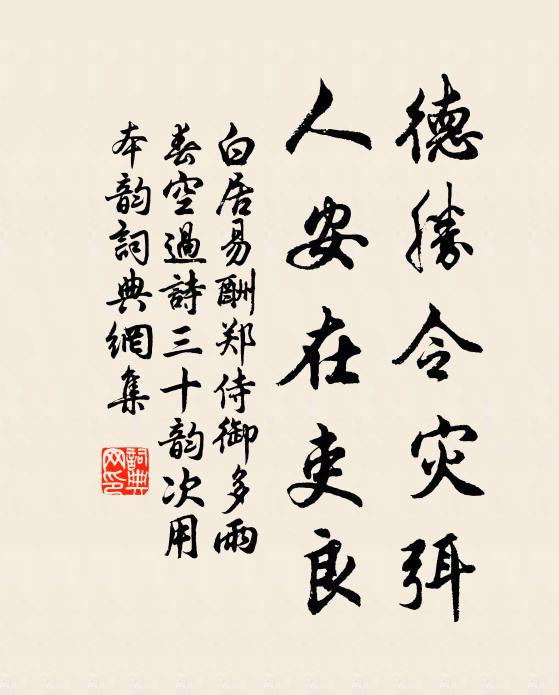 德勝令灾弭
人安在吏良
白居易酬郑侍御多雨
春空過詩三十韵次用
本韵詞典網集
詞典
网印